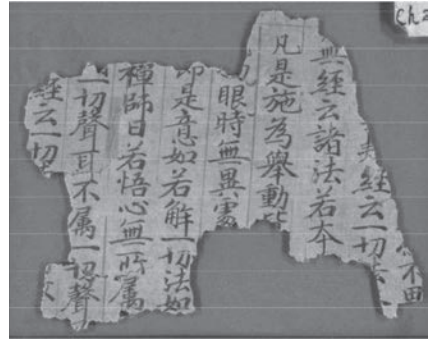 Ch 2
不
經云一切法
典經云諸法若本
凡是施為舉動
眼時無異處
即是意如若解一切法如
禪師曰若悟心無所屬
一切聲且不属一切聲
經云一切